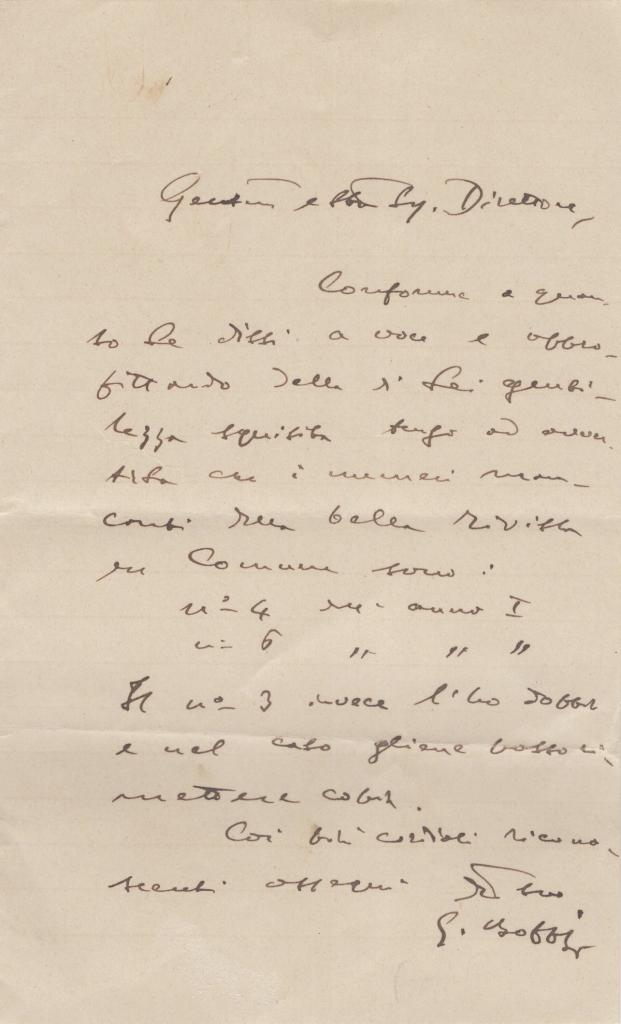 Gentm e Ill. Sig. Direttore,
Conforme a quan-
to Le dissi a voce e appro-
fittando della di Lei genti-
lezza squisita tengo ad avver-
tirLa che i numeri man-
canti della bella rivista
del Comune sono:
n° 4 dell' anno I
n= 6 " " "
Il n° 3 invece l'ho doppio
e nel caso gliene posso ri-
mettere copia.
Coi più cordiali ricono-
scenti ossequi suo
G.